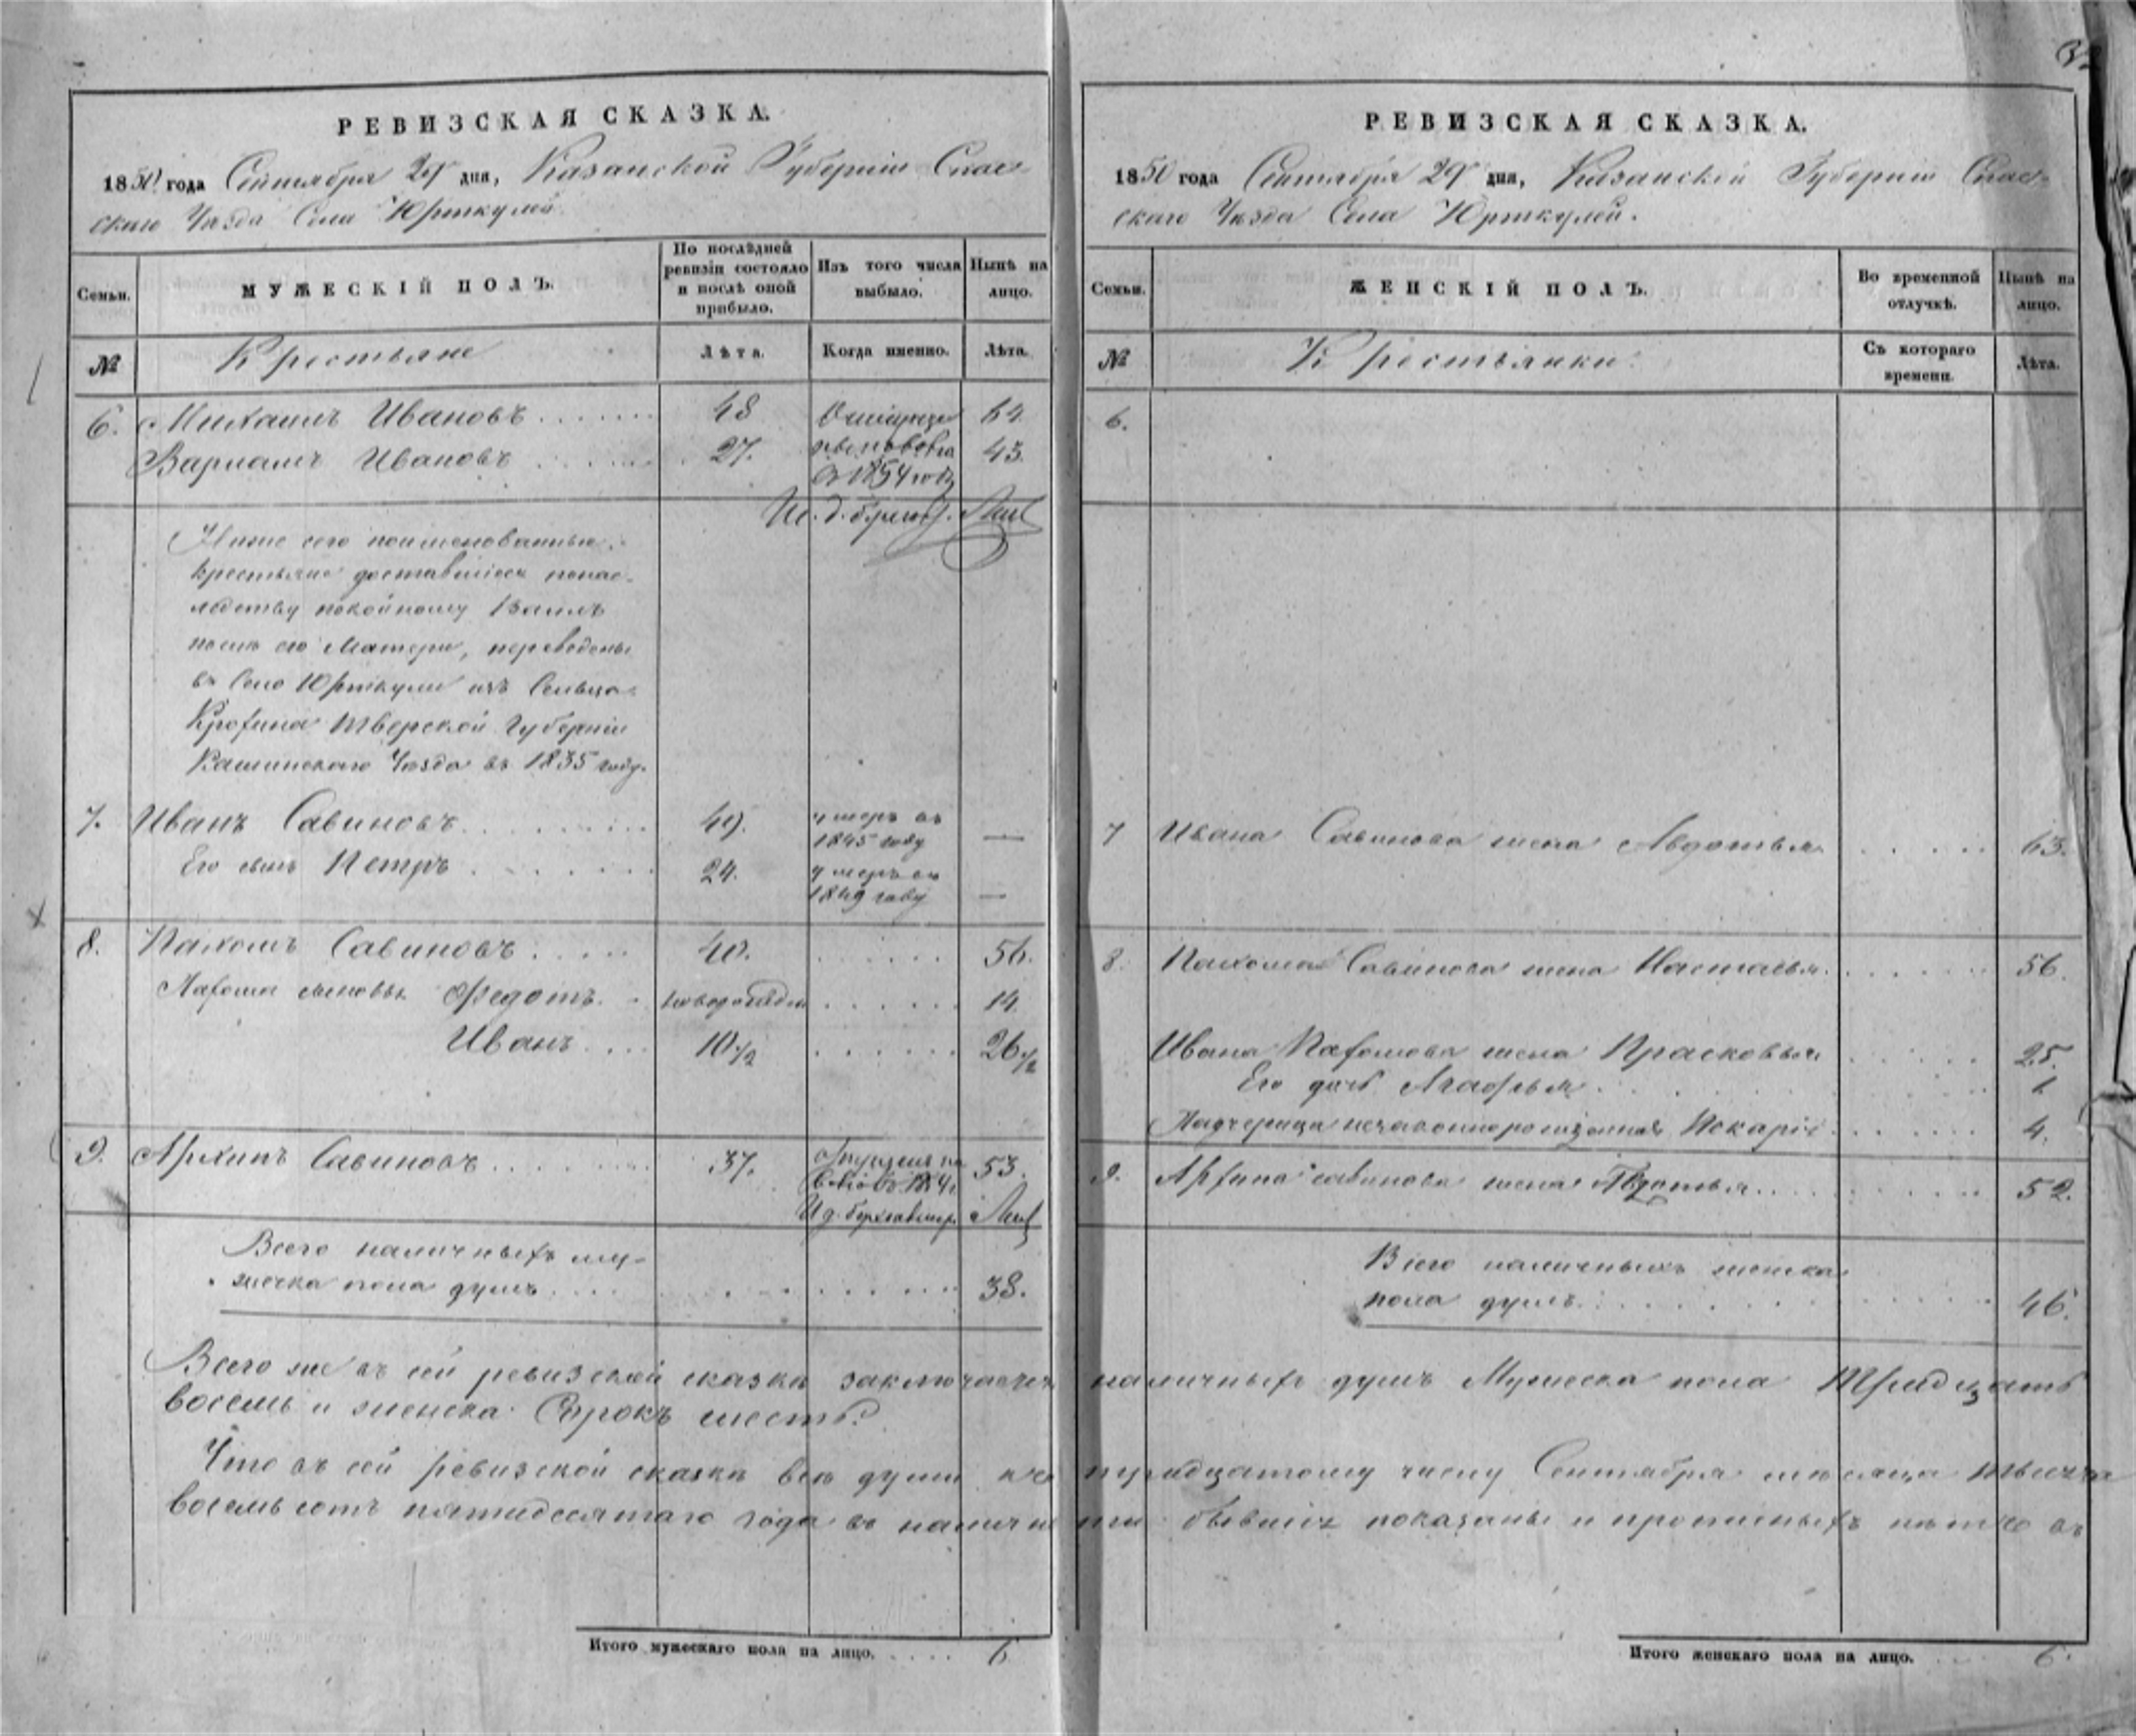 РЕВИЗСКАЯ СКАЗКА.
1850 года Сентября 29 дня, Казанской Губерніи Спас-
скаго Уѣзда Села Юрткулей
Семьи.
МУЖЕСКІЙ ПОЛЪ.
По послѣдней ревизіи состояло и послѣ оной прибыло.
Изъ того числа выбыло.
Нынѣ на лицо.
№
Крестьяне
Лѣта.
Когда именно.
Лѣта.
6. Михаилъ Ивановъ 48 64.
Варламъ Ивановъ 27. 43.
въ 1854 году
Ниже сего поименованные
крестьяне доставшіеся понас-
лѣдству покойному
после его Матери, переведены
въ Село Юрткули изъ Сельца
Тверской Губерніи
Кашинскаго Уѣзда въ 1835 году.
7. Иванъ Савиновъ 49. умеръ въ 1845 году —
Его сынъ Петръ 24. умеръ въ 1849 году —
8. Пахомъ Савиновъ 40. 56.
Пахома сыновья Федотъ новорожден 14.
Иванъ 10 1/2 26 1/2
9. Архипъ Савиновъ 37. 53.
Всего наличныхъ му-
жескка пола душъ 38.
Всего же въ сей ревизской сказкѣ заключается
восемь и женска Сорокъ шесть.
Что въ сей ревизской сказкѣ всѣ души къ
восемьсотъ пятидесятаго года въ налич
Итого мужескаго пола на лицо. 6
РЕВИЗСКАЯ СКАЗКА.
1850 года Сентября 29 дня, Казанской Губерніи Спас-
скаго Уѣзда Села Юрткулей.
Семьи.
ЖЕНСКІЙ ПОЛЪ.
Во временной отлучкѣ.
Нынѣ на лицо.
№
Крестьянки.
Съ котораго времени.
Лѣта.
6.
7 Ивана Савинова жена Авдотья 63.
8. Пахома Савинова жена Настасья 56.
Ивана Пахомова жена Прасковья 25.
Его дочь Агафья 1
Падчерица незаконнорожденная 4.
9. Архипа Савинова жена Авдотья 52.
Всего наличныхъ женска
пола душъ 46.
наличныхъ душъ Мужеска пола Тридцать
тридцатому числу Сентября мѣсяца тысяча
бывшіе показаны и прописныхъ нѣтъ въ
Итого женскаго пола на лицо. 6.